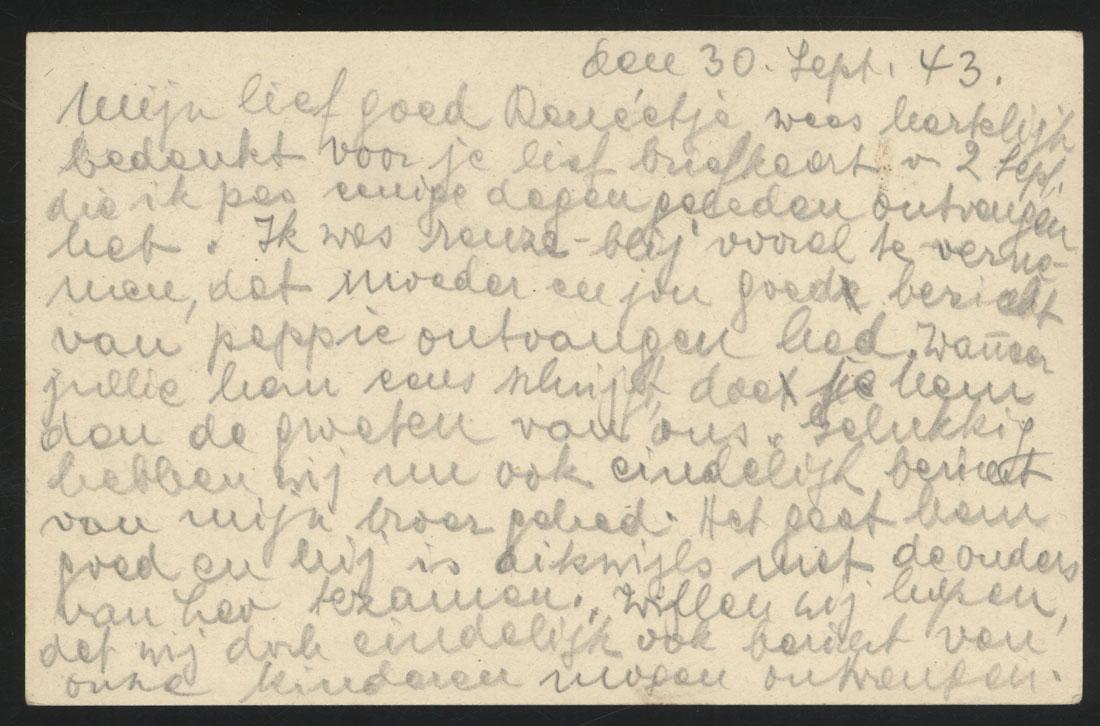 den 30. Sept. 43.
Mijn lief goed Renéetje wees hartelijk
bedankt voor je lief briefkaart v 2 Sept.
die ik pas eenige dagen geleden ontvangen
heb. Ik was reuze-blij vooral te verne-
men, dat moeder en jou goed bericht
van peppie ontvangen had. Wanneer
jullie hem eens schrijft, doet je hem
dan de groeten van ons. Gelukkig
hebben wij nu ook eindelijk bericht
van mijn broer gehad. Het gaat hem
goed en hij is dikwijls met de ouders
van Leo tezamen. Willen wij hopen,
dat wij doch eindelijk ook bericht van
onze kinderen mogen ontvangen.